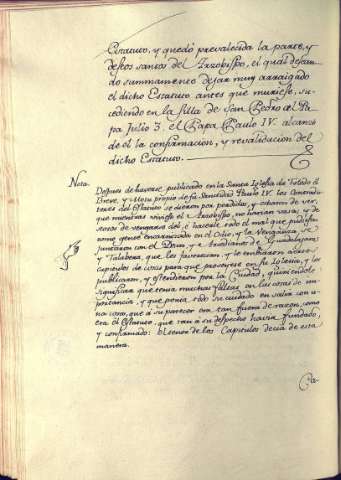 Estatuto, y quedò prevalecida la parte, y
deseos santos del Arzobispo, el qual desean-
do summamente dejar muy arraigado
el dicho Estatuto antes que muriese, su-
cediendo en la silla de San Pedro al Pa-
pa Julio 3. el Papa Paulo IV. alcanzò
de el la confirmacion, y revalidacion del
dicho Estatuto.
Nota. Despues de haverse publicado en la Santa Iglesia de Toledo el
Breve, y Motu proprio de su Santidad Paulo IV. los Contradi-
tores del Estatuto se dieron por perdidos, y echaron de ver
que mientras viviese el Arzobispo, no harian vasa; y de-
seosos de vengarse del, è hacerle todo el mal que pudiesen
como gente encarnizada en el Odio, y la Venganza, se
juntaron con el Dean, y Arcedianos de Guadalajara,
y Talabera, que los favorecian, y le embiaron a dar
capitulos de cosas para que proveyese en su Iglesia, y los
publicaron, y estendieron por la Ciudad, queriendo
significar que tenia muchas faltas en las cosas de im-
portancia, y que ponia todo su cuidado en salir con u-
na cosa, que à su parecer era tan fuera de razon, como
era el Estatuto, que tan à su despecho havia fundado,
y confirmado: el tenor de los Capitulos decia de esta
manera.